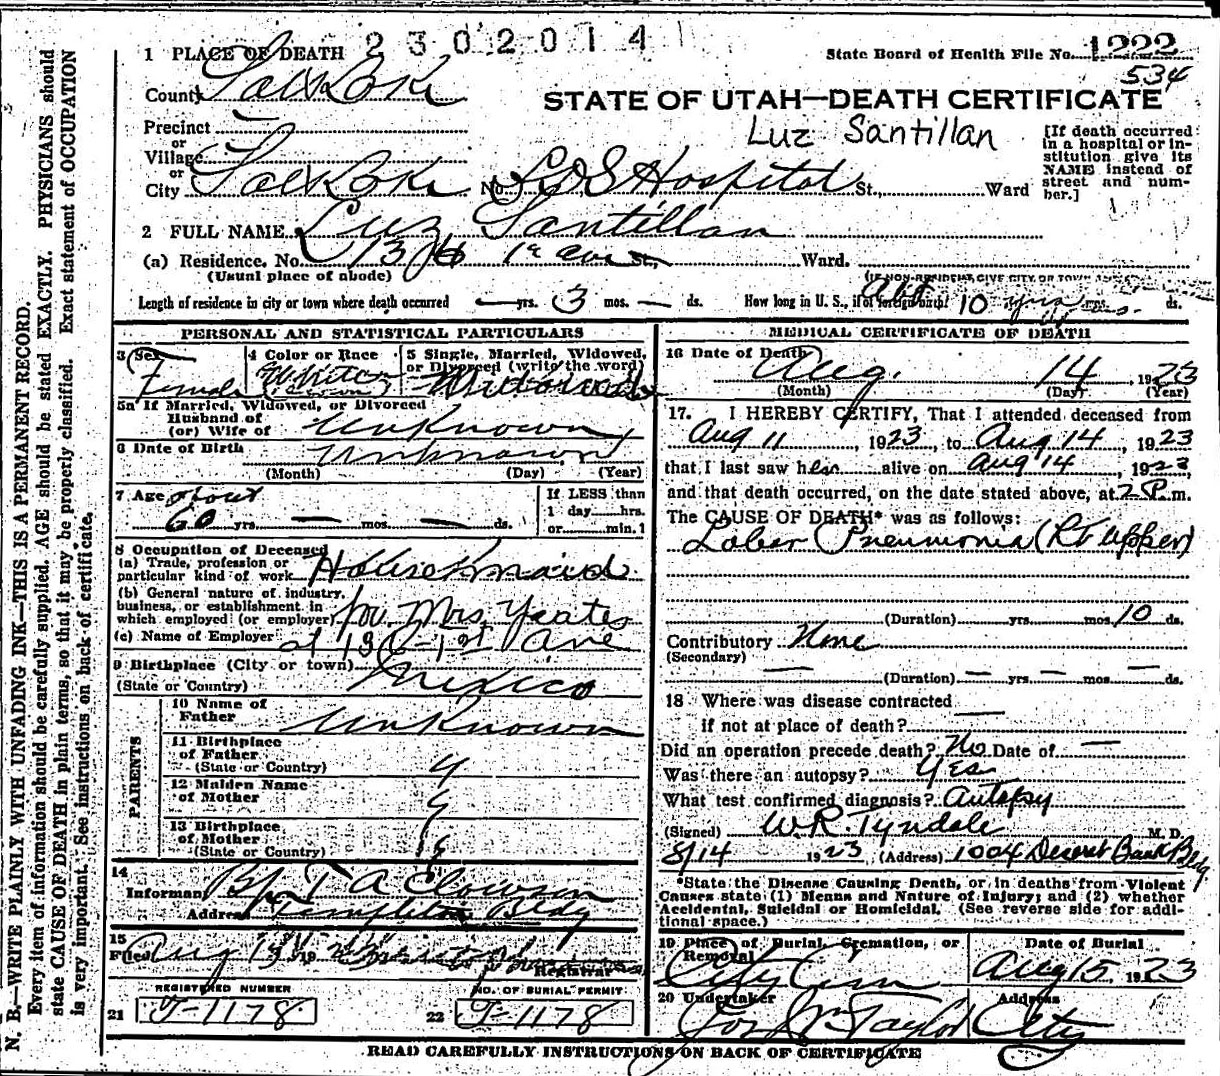 N. B.—WRITE PLAINLY WITH UNFADING INK—THIS IS A PERMANENT RECORD.
Every item of information should be carefully supplied. AGE should be stated EXACTLY. PHYSICIANS should
state CAUSE OF DEATH in plain terms, so that it may be properly classified. Exact statement of OCCUPATION
is very important. See instructions on back of certificate.
2302014
1 PLACE OF DEATH
State Board of Health File No. 1222
534
County Salt Lake
STATE OF UTAH—DEATH CERTIFICATE
Luz Santillan
Precinct
or
Village
or
City Salt Lake No. LDS Hospital St., Ward
[If death occurred
in a hospital or in-
stitution give its
NAME instead of
street and num-
ber.]
2 FULL NAME Luz Santillan
(a) Residence. No. St., Ward.
(Usual place of abode)
(If NON-RESIDENT GIVE CITY OR TOWN
Length of residence in city or town where death occurred — yrs. 3 mos. — ds. How long in U. S., if of foreign birth? Abt 10 yrs. ds.
PERSONAL AND STATISTICAL PARTICULARS
3 Sex
Female
4 Color or Race
White
5 Single, Married, Widowed,
or Divorced (write the word)
Widowed
5a If Married, Widowed, or Divorced
Husband of
(or) Wife of Unknown
6 Date of Birth Unknown
(Month) (Day) (Year)
7 Age about
60 yrs. — mos. — ds.
If LESS than
1 day hrs.
or min.1
8 Occupation of Deceased
(a) Trade, profession or
particular kind of work House maid
(b) General nature of industry,
business, or establishment in
which employed (or employer) for Mrs. Yeates
(c) Name of Employer at 136-1st Ave
9 Birthplace (City or town)
(State or Country) Mexico
PARENTS
10 Name of
Father Unknown
11 Birthplace
of Father
(State or Country)
12 Maiden Name
of Mother
13 Birthplace
of Mother
(State or Country)
14
Informant Bp. T A Clawson
Address Templeton Bldg
15
Filed Aug 19
Registrar
REGISTERED NUMBER
21 J-1178
NO. OF BURIAL PERMIT
22 J-1178
MEDICAL CERTIFICATE OF DEATH
16 Date of Death Aug. 14 1923
(Month) (Day) (Year)
17. I HEREBY CERTIFY, That I attended deceased from
Aug 11, 1923, to Aug 14, 1923
that I last saw her alive on Aug 14, 1923
and that death occurred, on the date stated above, at 2 P.m.
The CAUSE OF DEATH* was as follows:
Lobar Pneumonia (Rt upper)
(Duration) yrs. mos. 10 ds.
Contributory None
(Secondary)
(Duration) — yrs. — mos. — ds.
18 Where was disease contracted
if not at place of death?
Did an operation precede death? No Date of —
Was there an autopsy? Yes
What test confirmed diagnosis? Autopsy
(Signed) W.R. Tyndale M. D.
8/14 1923 (Address) 1004 Deseret Bank Bldg
*State the Disease Causing Death, or in deaths from Violent
Causes state (1) Means and Nature of Injury; and (2) whether
Accidental, Suicidal or Homicidal. (See reverse side for addi-
tional space.)
19 Place of Burial, Cremation, or
Removal
City Cem
Date of Burial
Aug 15 1923
20 Undertaker
Jos Wm Taylor
Address
City
READ CAREFULLY INSTRUCTIONS ON BACK OF CERTIFICATE